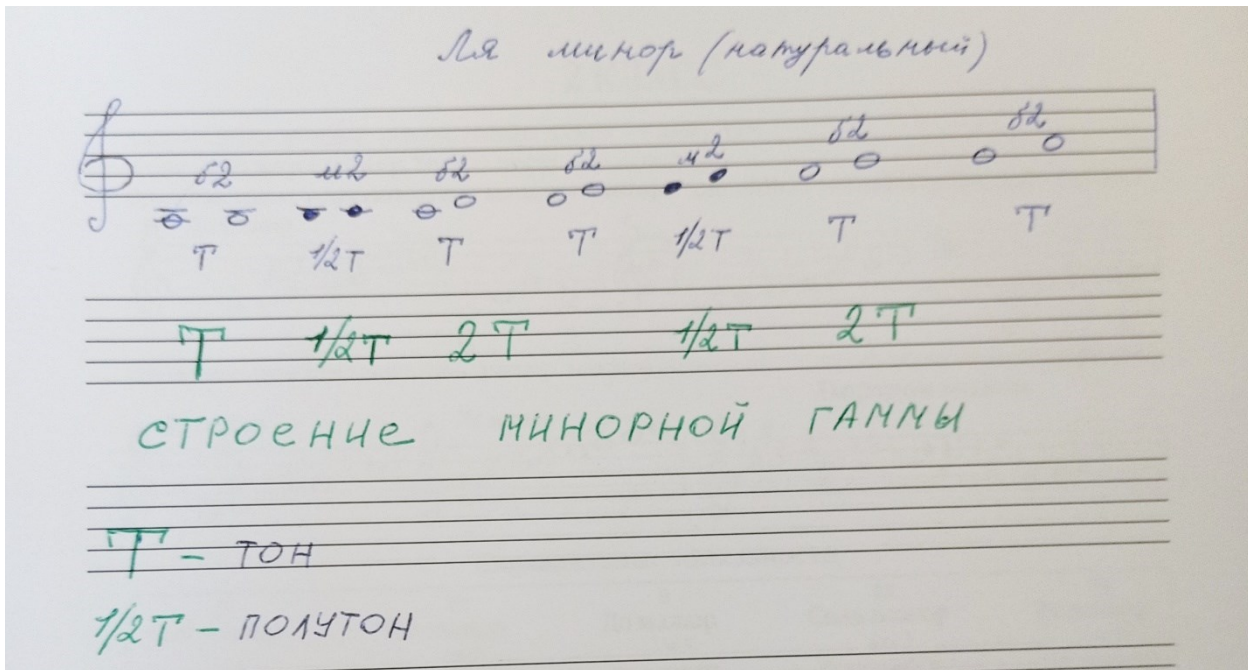 Ля минор (натуральный)
б2 м2 б2 б2 м2 б2 б2
Т 1/2Т Т Т 1/2Т Т Т
Т 1/2Т 2Т 1/2Т 2Т
СТРОЕНИЕ МИНОРНОЙ ГАММЫ
Т - ТОН
1/2Т - ПОЛУТОН